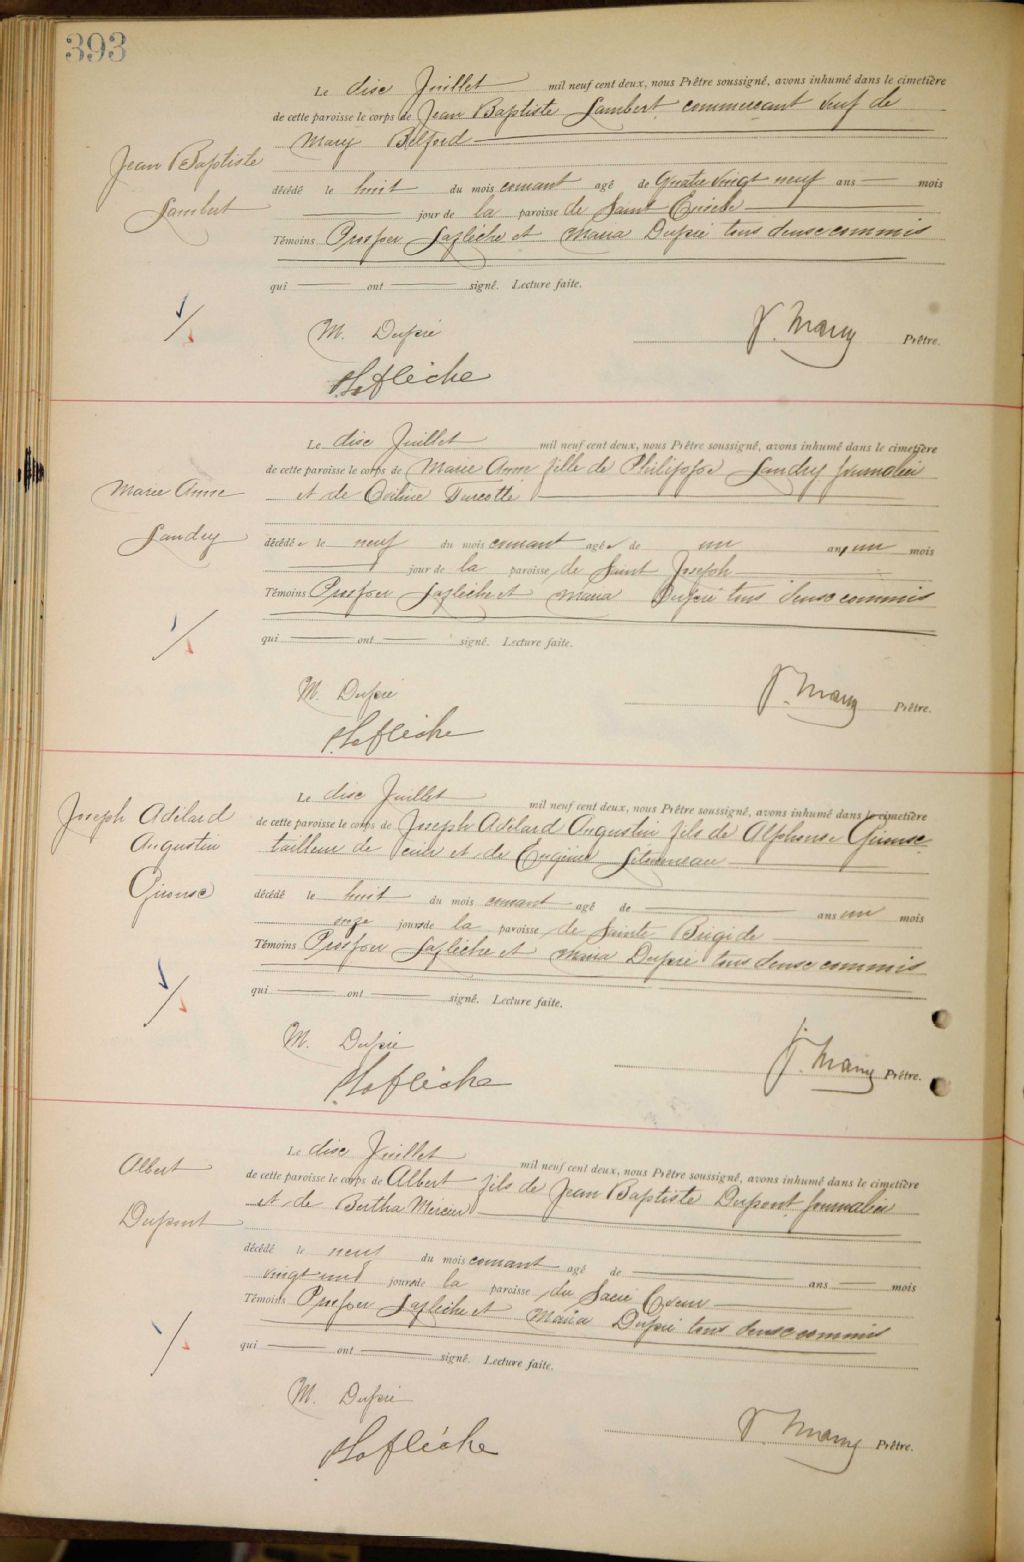 393
Le disc Juillet mil neuf cent deux, nous Prêtre soussigné, avons inhumé dans le cimetière
de cette paroisse le corps de Jean Baptiste Lambert commerçant veuf de
Mary Belford
Jean Baptiste
Lambert
décédé le huit du mois courant agé de Quatre vingt neuf ans mois
jour de la paroisse de Saint Eusèbe
Témoins Prosper Laflèche et Maria Dupré tous deux commis
qui ont signé. Lecture faite.
M. Dupré
P. Laflèche
Prêtre.
Le disc Juillet mil neuf cent deux, nous Prêtre soussigné, avons inhumé dans le cimetière
de cette paroisse le corps de Marie Anne fille de Philippe Landry Journalier
et de Turcotte
Marie Anne
Landry
décédée le neuf du mois courant agée de un an un mois
jour de la paroisse de Saint Joseph
Témoins Prosper Laflèche et Maria Dupré tous deux commis
qui ont signé. Lecture faite.
M. Dupré
P. Laflèche
Prêtre.
Le disc Juillet mil neuf cent deux, nous Prêtre soussigné, avons inhumé dans le cimetière
de cette paroisse le corps de Joseph Adélard Augustin fils de Alphonse Girouse
tailleur de cuir et de Eugénie
Joseph Adélard
Augustin
Girouse
décédé le huit du mois courant agé de ans un mois
onze jours de la paroisse de Sainte Brigide
Témoins Prosper Laflèche et Maria Dupré tous deux commis
qui ont signé. Lecture faite.
M. Dupré
P. Laflèche
Prêtre.
Le disc Juillet mil neuf cent deux, nous Prêtre soussigné, avons inhumé dans le cimetière
de cette paroisse le corps de Albert fils de Jean Baptiste Dupont Journalier
et de Bertha Mercier
Albert
Dupont
décédé le neuf du mois courant agé de ans mois
vingt un jours de la paroisse du Sacré Coeur
Témoins Prosper Laflèche et Maria Dupré tous deux commis
qui ont signé. Lecture faite.
M. Dupré
P. Laflèche
Prêtre.